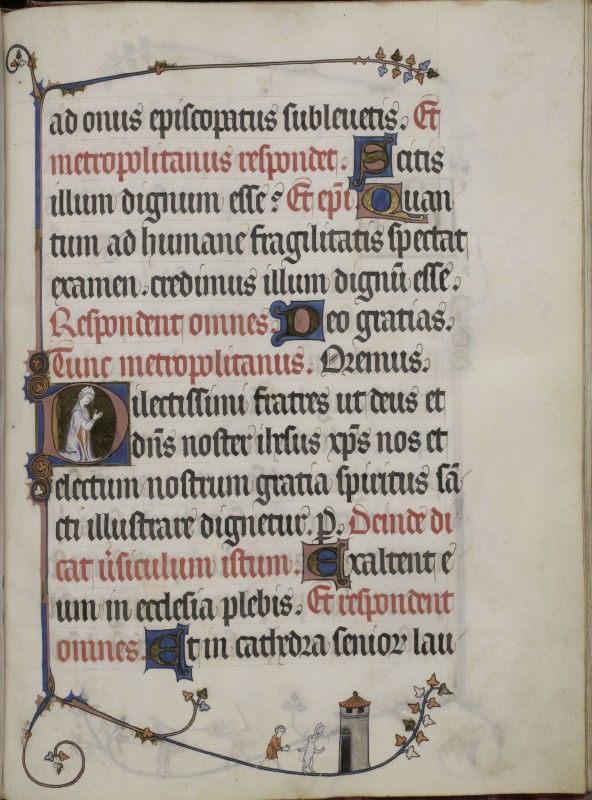 ad onus episcopatus subleuetis. Et
metropolitanus respondet. Scitis
illum dignum esse? Et ep̄i Quan
tum ad humane fragilitatis spectat
examen. credimus illum dignū esse.
Respondent omnes. Deo gratias.
Tunc metropolitanus. Oremus.
Dilectissimi fratres ut deus et
dn̄s noster ihesus xp̄s nos et
electum nostrum gratia spiritus sā
cti illustrare dignetur. p̄. Deinde di
cat v̄siculum istum. Exaltent e
um in ecclesia plebis. Et respondent
omnes. Et in cathedra senior lau